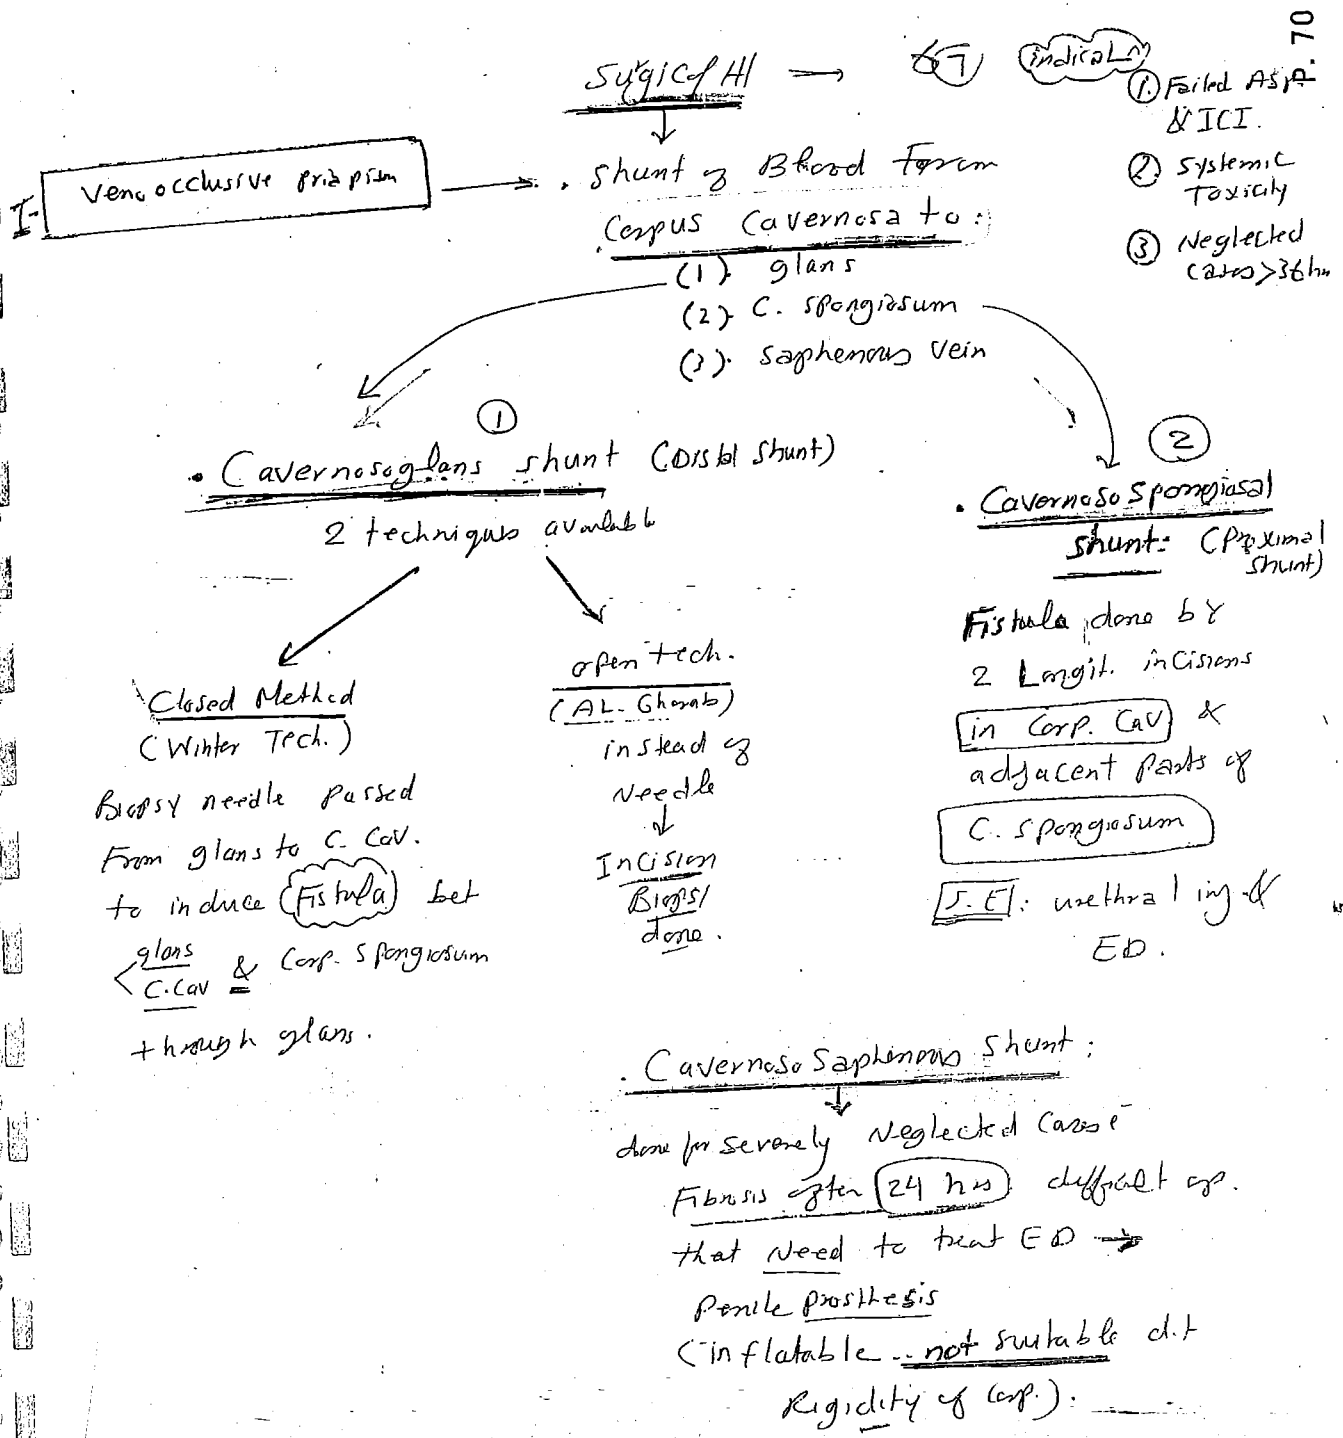 P. 70
Sugical ttt → 67 indicatn
① Failed Asp.
& ICI.
② Systemic
Toxicity
③ Neglected
Cases >36hrs
I- Veno occlusive priapism → . Shunt of Blood From
Corpus Cavernosa to:
(1). glans
(2). C. spongiosum
(3). Saphenous vein
①
. Cavernosoglans shunt (Distal Shunt)
2 techniques available
Closed Method
(Winter Tech.)
Biopsy needle passed
From glans to C. Cav.
to induce (Fistula) bet
glans
C.Cav & Corp. Spongiosum
through glans.
open tech.
(AL-Ghorab)
instead of
Needle
↓
Incision
Biopsy
done.
②
. Cavernoso Spongiosal
shunt: (Proximal
Shunt)
Fistula done by
2 Longit. incisions
in Corp. Cav &
adjacent parts of
C. spongiosum
S.E: urethral inj &
ED.
. Cavernoso Saphenous Shunt:
done for severely Neglected Cases c̄
Fibrosis after 24 hrs difficult op.
that Need to treat ED →
Penile prosthesis
(inflatable .. not suitable d.t
Rigidity of Corp.).